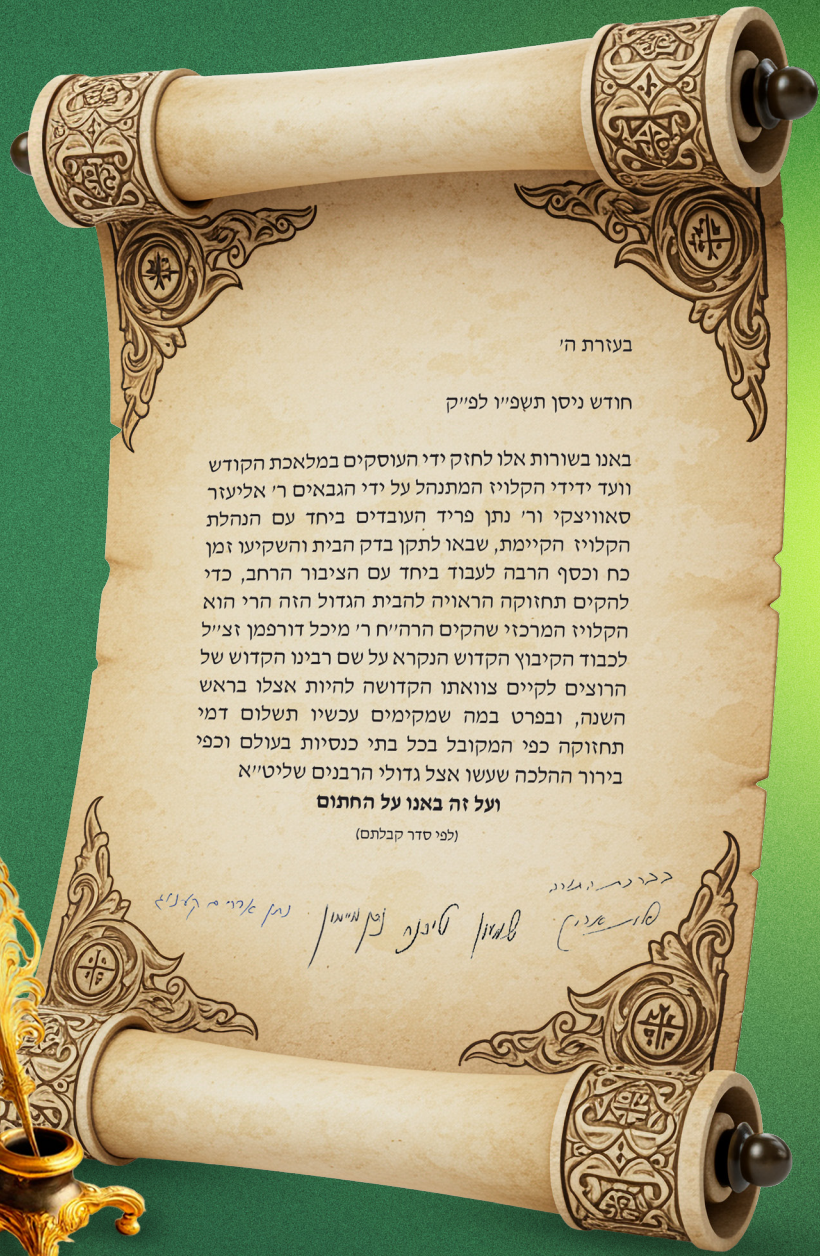 בעזרת ה'
חודש ניסן תשפ״ו לפ״ק
באנו בשורות אלו לחזק ידי העוסקים במלאכת הקודש
וועד ידידי הקלויז המתנהל על ידי הגבאים ר' אליעזר
סאוויצקי ור' נתן פריד העובדים ביחד עם הנהלת
הקלויז הקיימת, שבאו לתקן בדק הבית והשקיעו זמן
כח וכסף הרבה לעבוד ביחד עם הציבור הרחב, כדי
להקים תחזוקה הראויה להבית הגדול הזה הרי הוא
הקלויז המרכזי שהקים הרה״ח ר' מיכל דורפמן זצ״ל
לכבוד הקיבוץ הקדוש הנקרא על שם רבינו הקדוש של
הרוצים לקיים צוואתו הקדושה להיות אצלו בראש
השנה, ובפרט במה שמקימים עכשיו תשלום דמי
תחזוקה כפי המקובל בכל בתי כנסיות בעולם וכפי
בירור ההלכה שעשו אצל גדולי הרבנים שליט״א
ועל זה באנו על החתום
(לפי סדר קבלתם)
בברכת התורה
שמעון נתן מיימון נתן